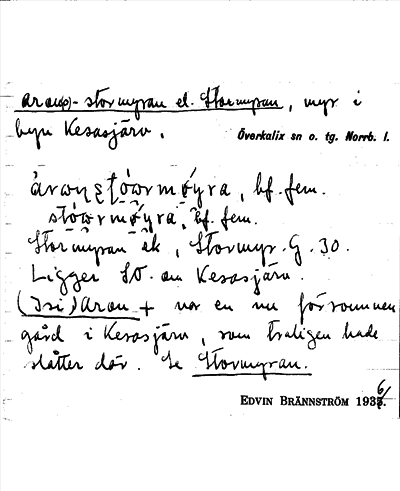 Aron(s)-stormyran el. Stormyran, myr i
byn Kesasjärv.
Överkalix sn o. tg. Norrb. l.
bf. fem.
bf. fem.
Stormyran ek, Stormyr. G. 30.
Ligger SO. om Kesasjärv.
(Isi)Aron + var en nu försvunnen
gård i Kesasjärv, som troligen hade
slåtter där. Se Stormyran.
EDVIN BRÄNNSTRÖM 1936.